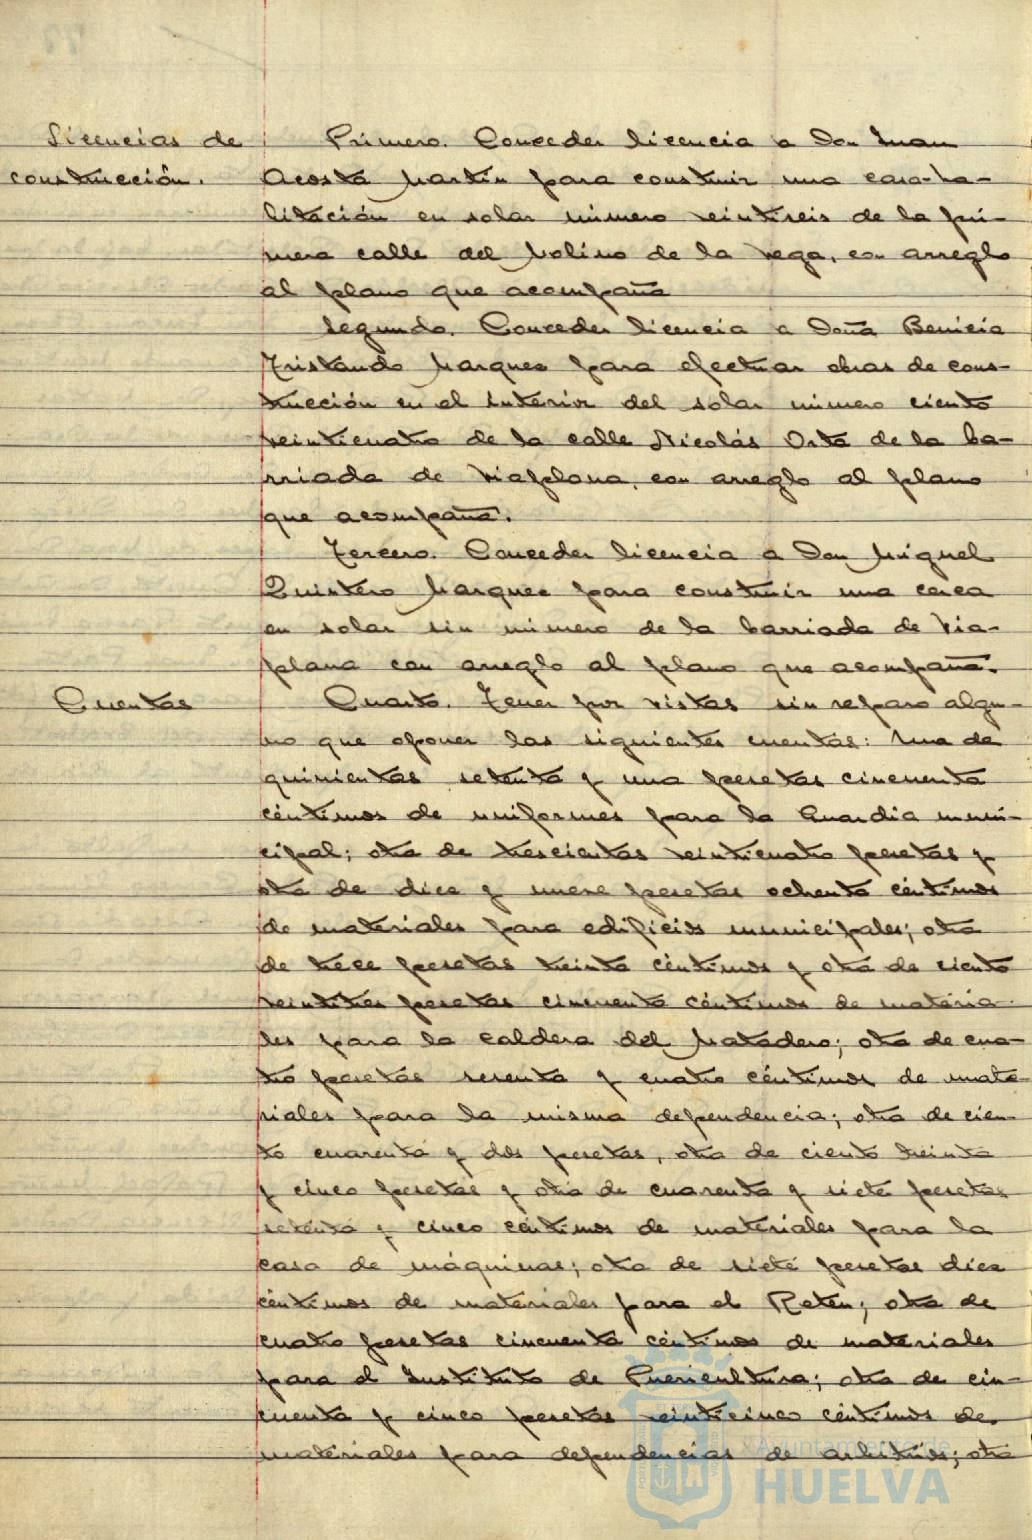 Licencias de
construcción.
Primero. Conceder licencia a Don Juan
Acosta Martín para construir una casa-ha-
bitación en solar número veintiseis de la pri-
mera calle del Molino de la Vega, con arreglo
al plano que acompaña
Segundo. Conceder licencia a Doña Benicia
Tristando Marquez para efectuar obras de cons-
trucción en el interior del solar número ciento
veinticuatro de la calle Nicolás Orta de la ba-
rriada de Viaplana, con arreglo al plano
que acompaña.
Tercero. Conceder licencia a Don Miguel
Quintero Marquez para construir una cerca
en solar sin número de la barriada de Via-
plana con arreglo al plano que acompaña.
Cuentas
Cuarto. Tener por vistas sin reparo algu-
no que oponer las siguientes cuentas: Una de
quinientas setenta y una pesetas cincuenta
céntimos de uniformes para la Guardia muni-
cipal; otra de trescientas veinticuatro pesetas y
otra de diez y nueve pesetas ochenta céntimos
de materiales para edificios municipales; otra
de trece pesetas treinta céntimos y otra de ciento
veintitres pesetas cincuenta céntimos de materia-
les para la caldera del Matadero; otra de cua-
tro pesetas sesenta y cuatro céntimos de mate-
riales para la misma dependencia; otra de cien-
to cuarenta y dos pesetas, otra de ciento treinta
y cinco pesetas y otra de cuarenta y siete pesetas
setenta y cinco céntimos de materiales para la
casa de máquinas; otra de siete pesetas diez
céntimos de materiales para el Reten; otra de
cuatro pesetas cincuenta céntimos de materiales
para el Instituto de Puericultura; otra de cin-
cuenta y cinco pesetas veinticinco céntimos de
materiales para dependencias de arbitrios; otra
Ayuntamiento de
HUELVA